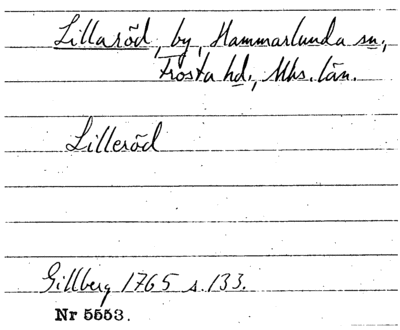 Lillaröd, by, Hammarlunda sn.,
Frosta hd., Mhs. län.
Lilleröd
Gillberg 1765 s. 133.
Nr 5553.